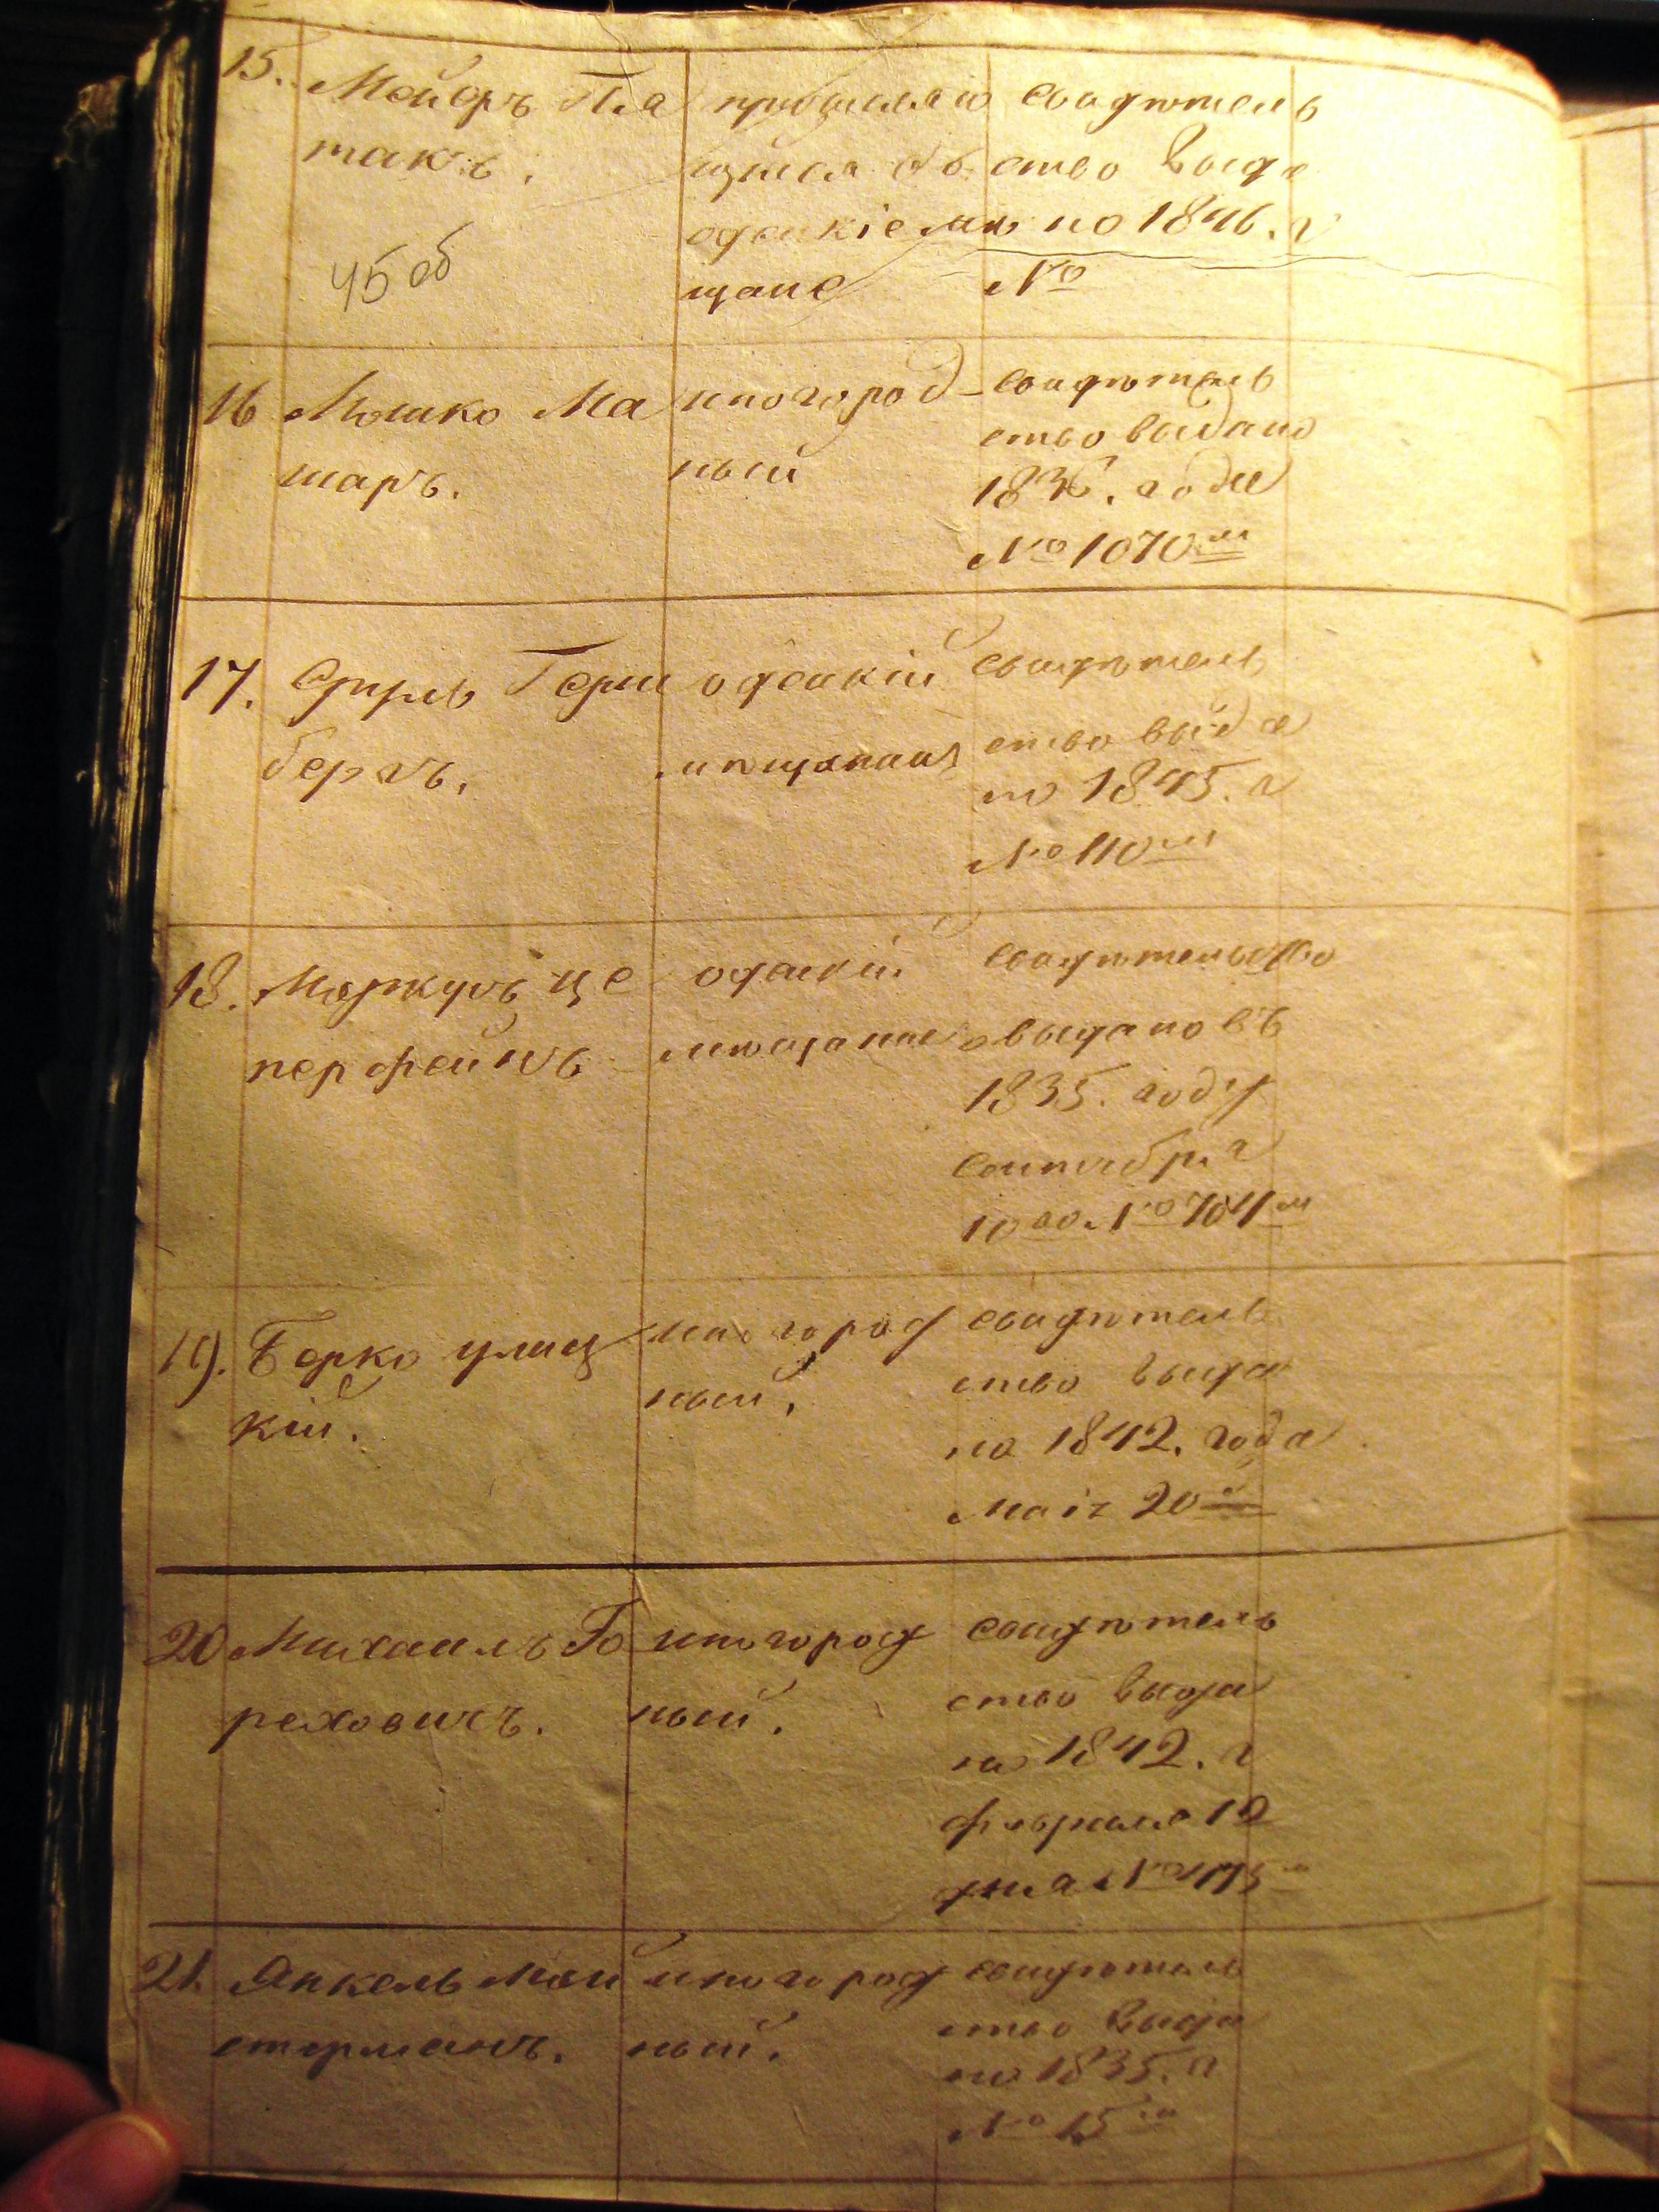 15. Мейеръ Пя
такъ.
45 об
причисляю
щійся въ
одескіе мѣ
щане
свидѣтель
ство выда
но 1846. г
№
16 Мошко Ма
шаръ.
иногород
ный
свидѣтель
ство выдано
1836. года
№ 1070м
17. Сруль Герш
бергъ.
одескій
мѣщанин
свидѣтель
ство выда
но 1845. г
№ 110м
18. Маркусъ Це
перфейнъ
одескій
мѣщанин
свидѣтельство
выдано въ
1835. году
сентября
10го № 7011м
19. Берко улиц
кій.
иногород
ный.
свидѣтель
ство выда
но 1842. года
маія 20
20 Михаилъ Го
реховичъ.
иногород
ный.
свидѣтель
ство выда
но 1842. г
февраля 12
дня №
21. Янкель Мей
стерманъ.
иногород
ный.
свидѣтель
ство выда
но 1835. г
№ 15м